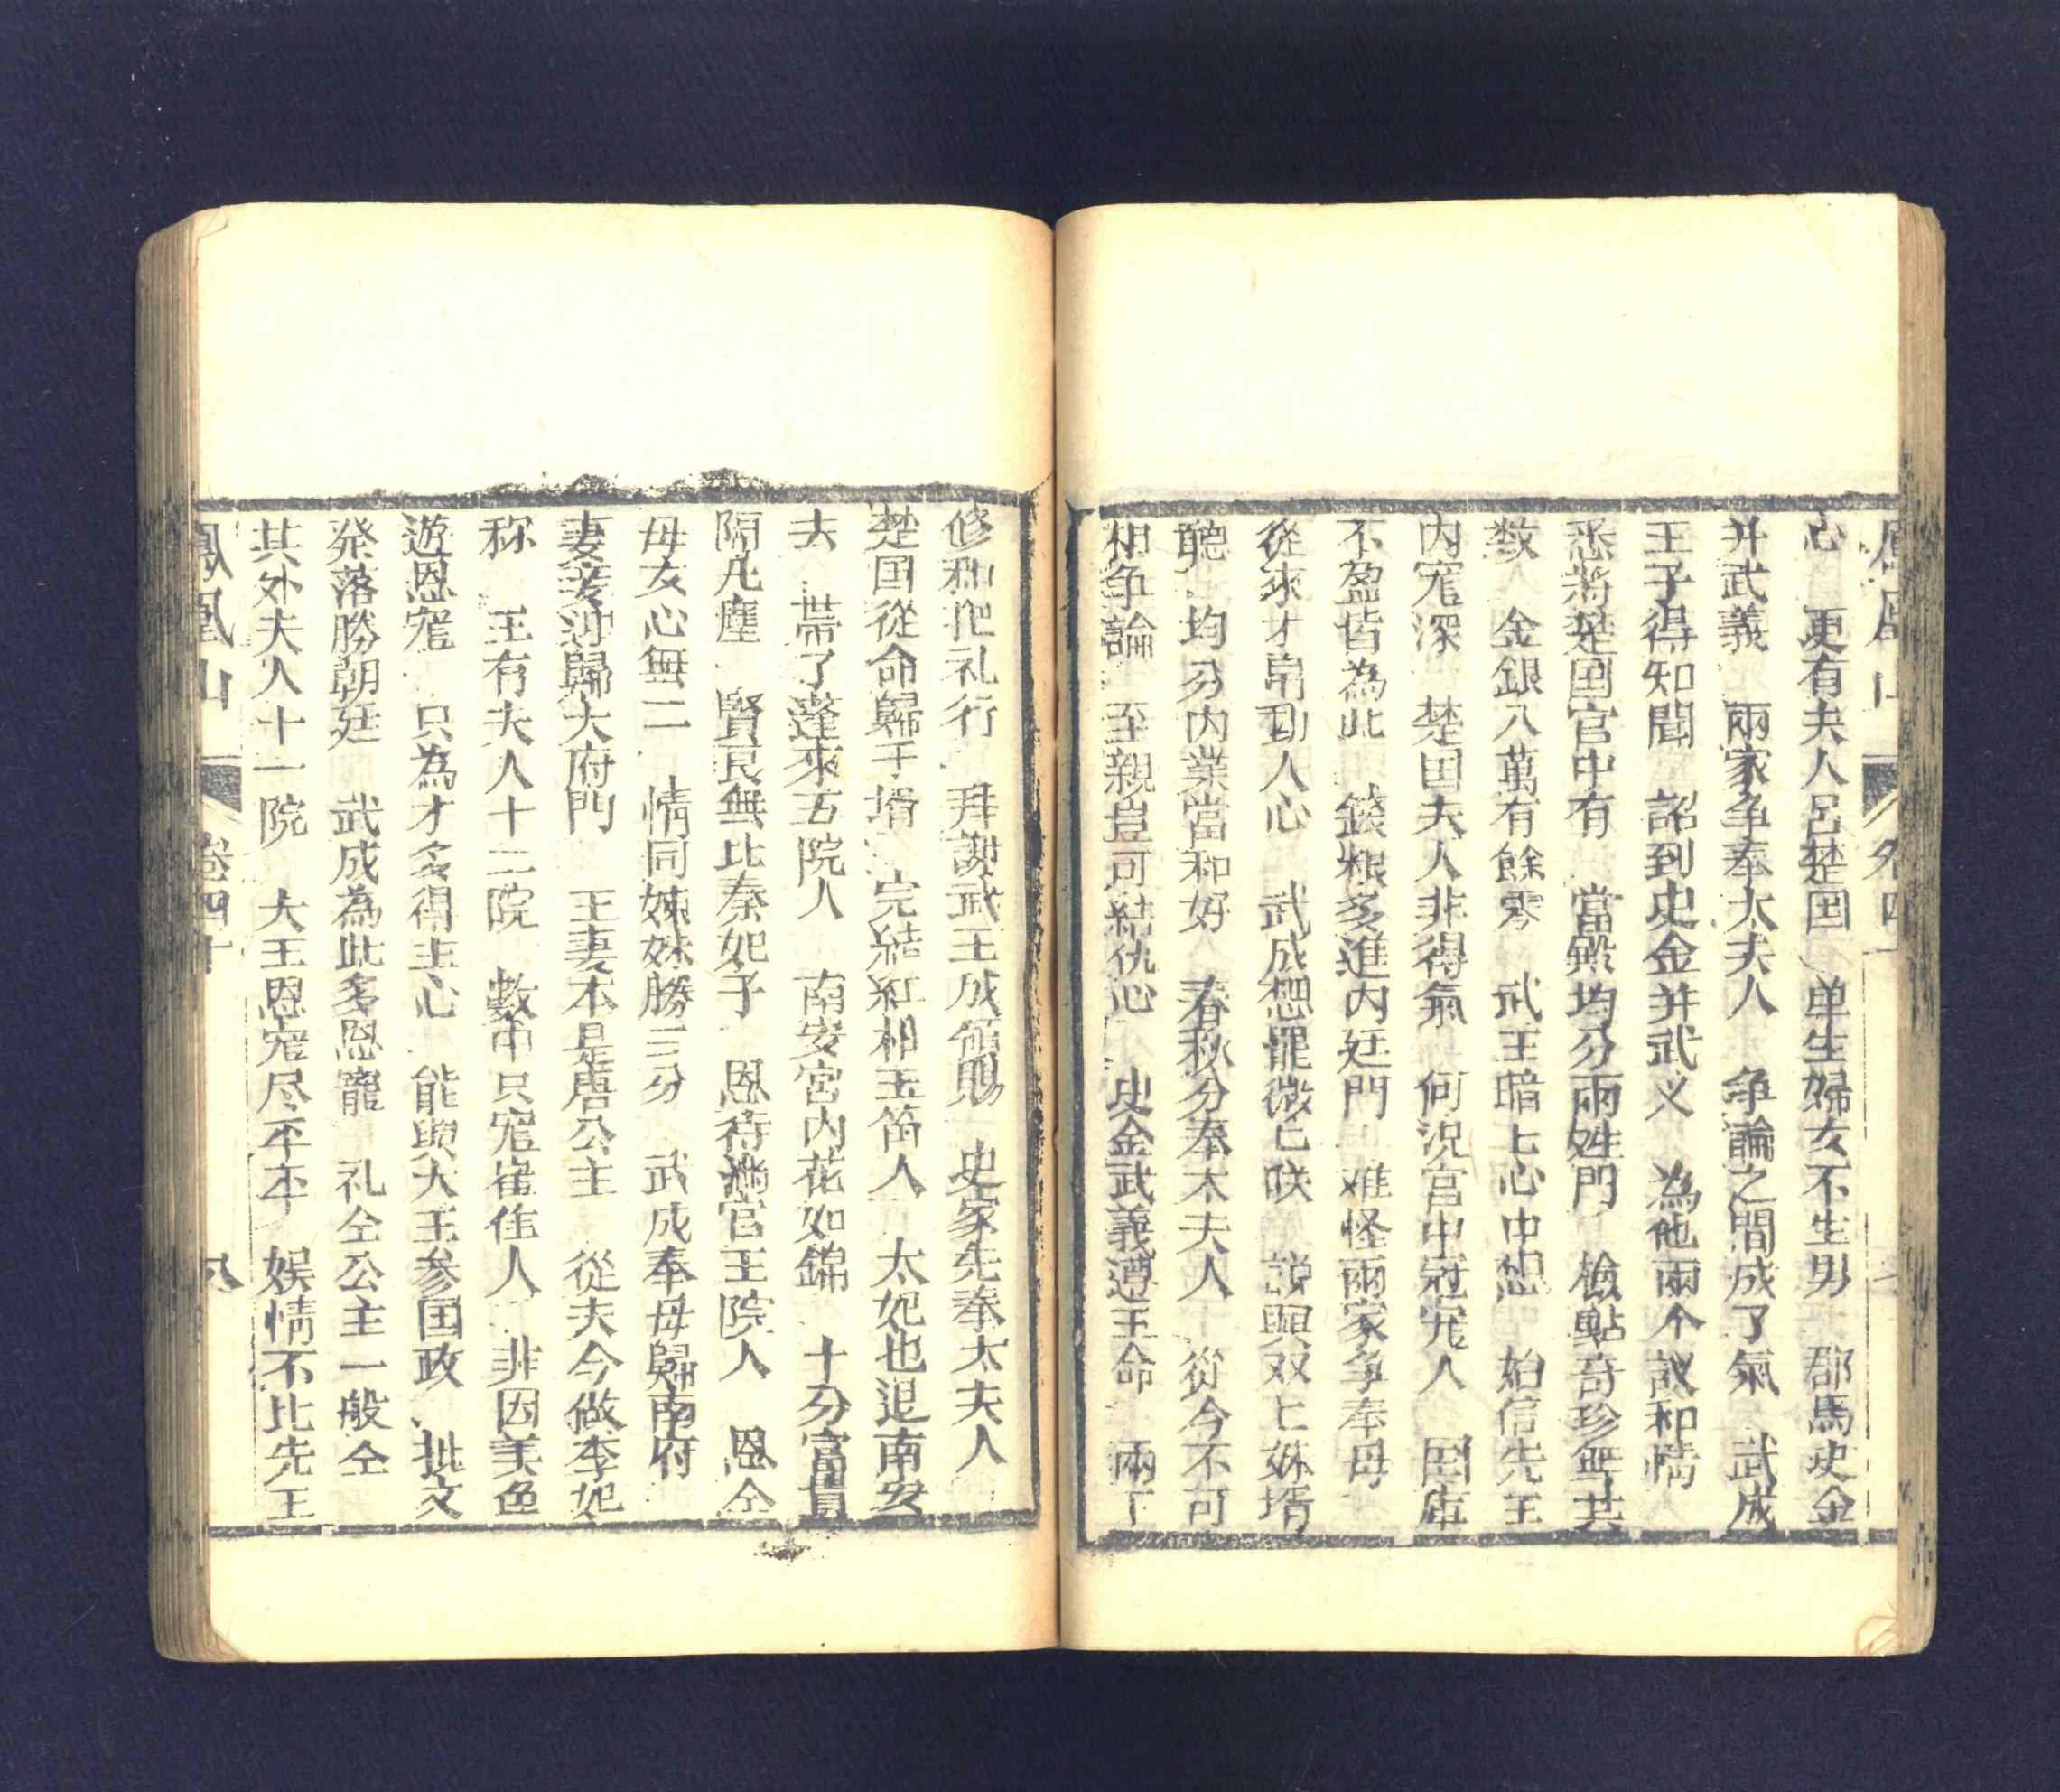 鳳凰山 卷四
心 更有夫人呂楚国 单生婦女不生男 郡馬史金
并武義 兩家争奉太夫人 争論之間成了氣 武成
王子得知聞 詔到史金并武义 為他兩个議和情
悉將楚国宫中有 當殿均分兩姓門 檢點奇珍無其
数 金銀八萬有餘零 武王暗匕心中想 始信先王
内寵深 楚国夫人非得氣 何況宫中冠寵人 国庫
不盈皆為此 錢粮多進内廷門 难怪兩家争奉母
從來才帛動人心 武成想罷微匕咲 説與双匕姝壻
聽 均分内業當和好 春秋分奉太夫人 從今不可
相争論 至親豈可結仇心 史金武義遵王命 兩下
修和把礼行 拜謝武王成頒賜 史家先奉太夫人
楚国從命歸于壻 完結紅相玉笛人 太妃也退南安
去 帶了蓬來五院人 南安宫内花如錦 十分富貴
隔凡塵 賢良無比秦妃子 恩待漪官王院人 恩仝
母女心無二 情同姊妹勝三分 武成奉母歸南府
妻妾迎歸大府門 王妻本是唐公主 從夫今做李妃
称 王有夫人十二院 數中只寵崔佳人 非因美色
遊恩寵 只為才多得主心 能與大王参国政 批文
発落勝朝廷 武成為此多恩寵 礼仝公主一般仝
其外夫人十一院 大王恩寵尽平本 娱情不比先王
鳳凰山 卷四十 八